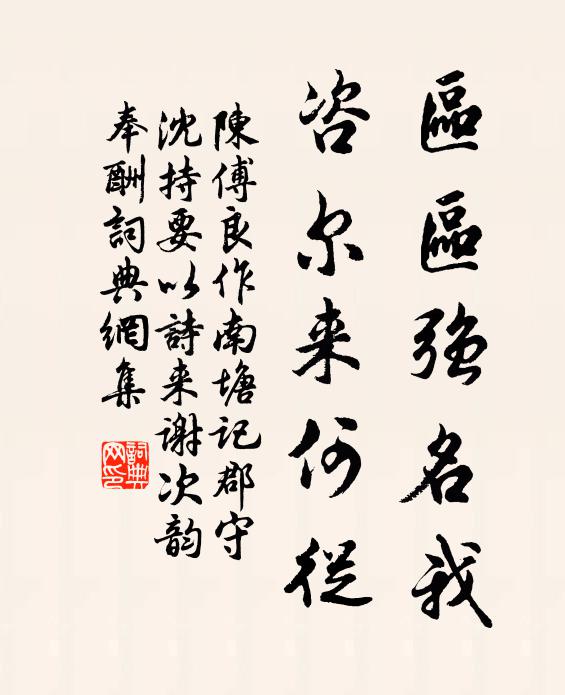 區區強名我
咨尔来何從
陳傅良作南塘记郡守
沈持要以詩来謝次韵
奉酬詞典網集
詞典网印